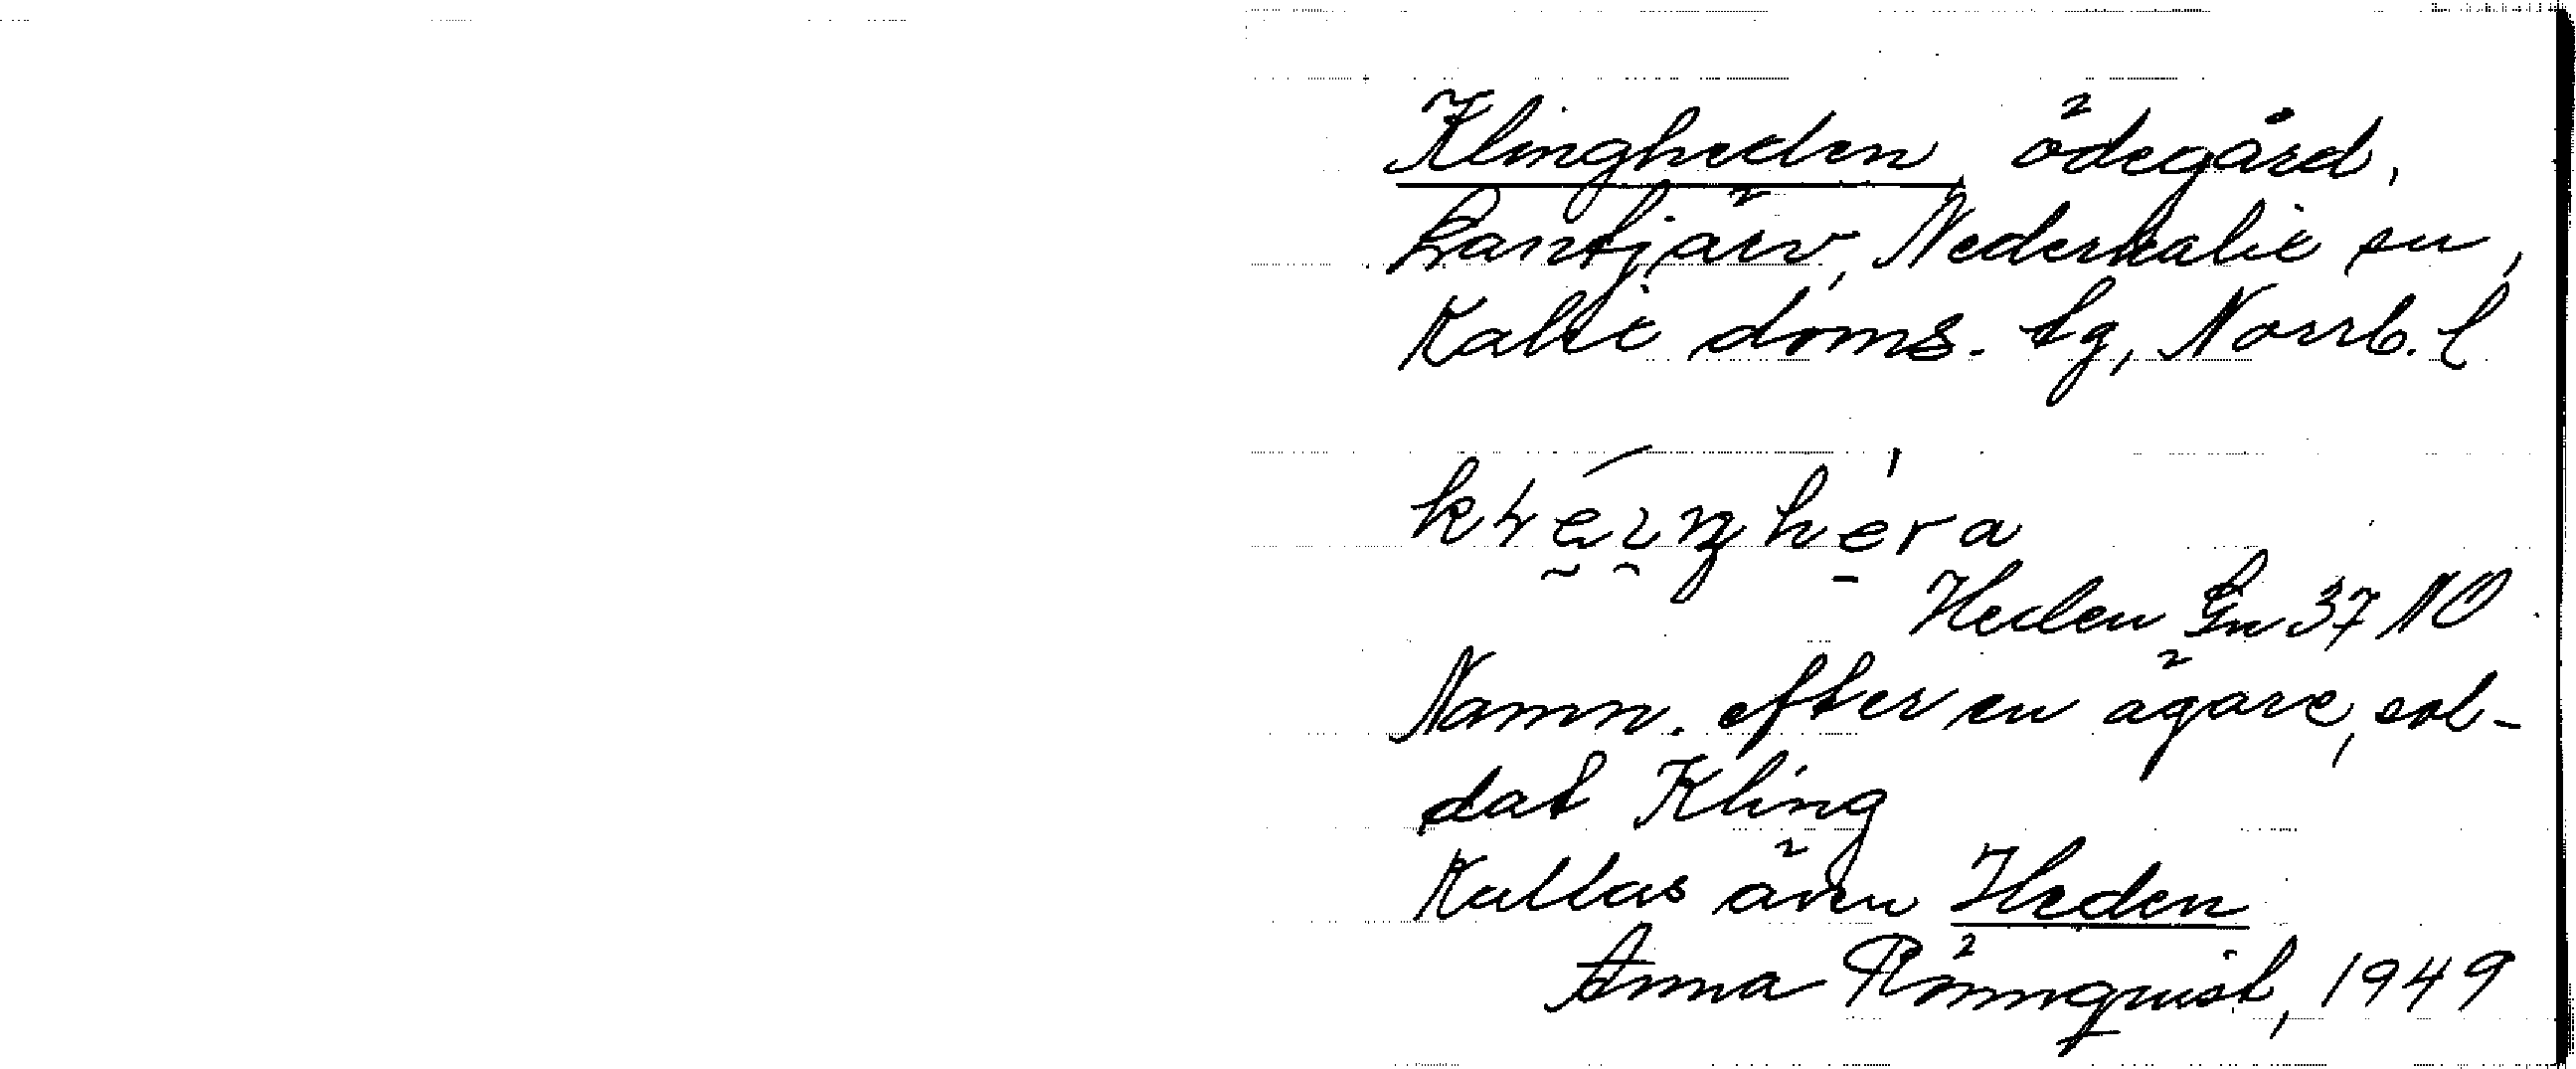 Klingheden, ödegård,
Lantjärv, Nederkalix sn,
Kalix doms. tg, Norrb. l
Heden Gn 37 NO
Namn. efter en ägare, sol-
dat Kling
Kallas även Heden
Anna Rönnquist, 1949